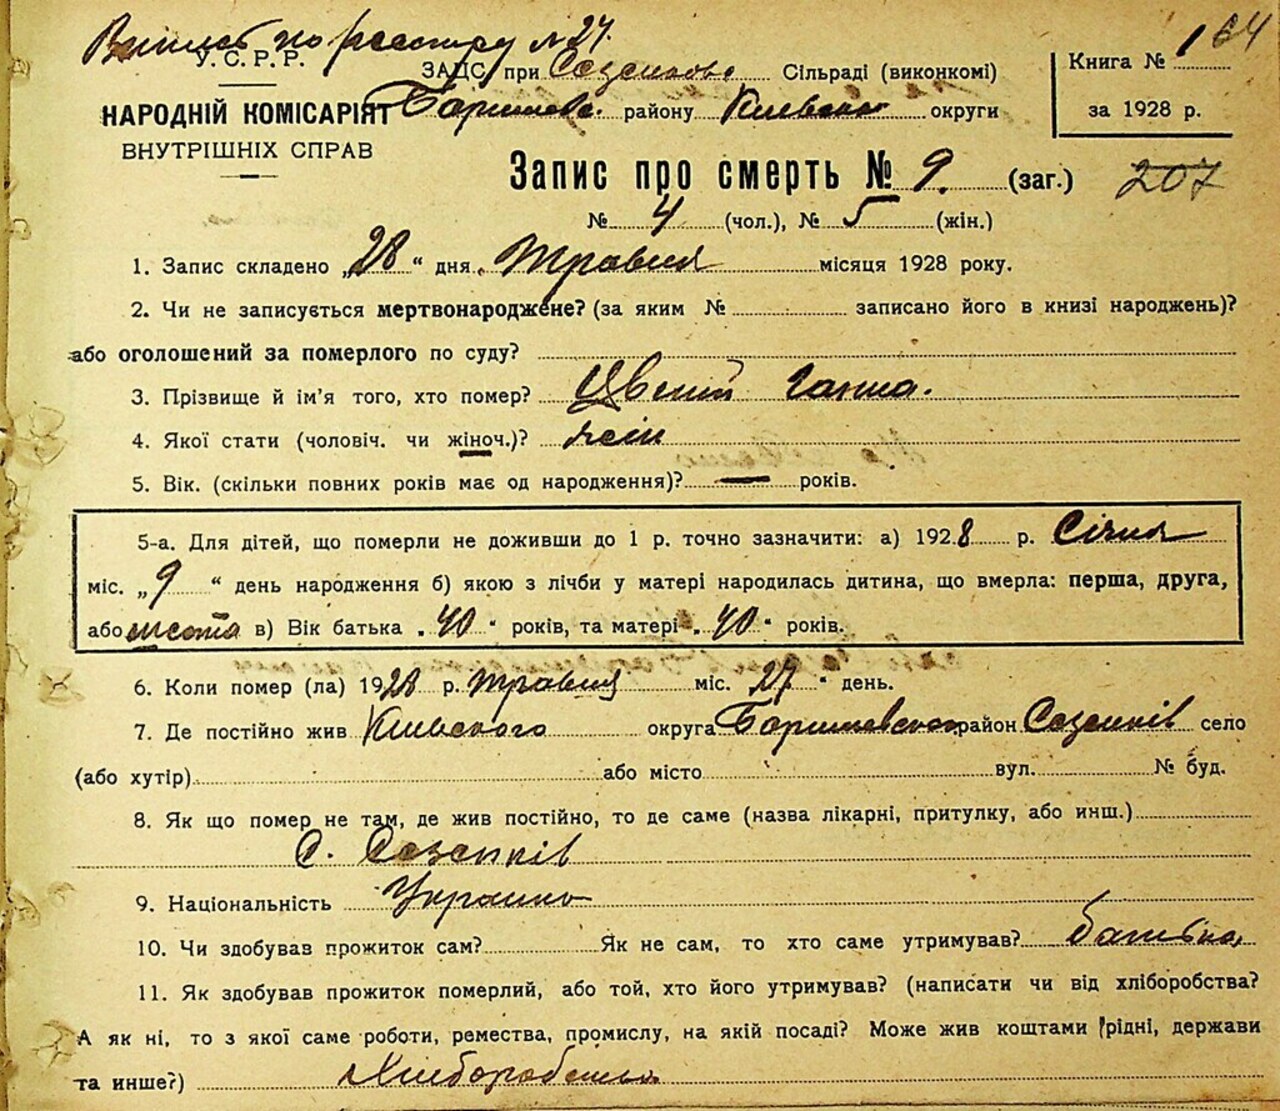 Випись по реестру № 27.
У.С.Р.Р.
НАРОДНІЙ КОМІСАРІЯТ
ВНУТРІШНІХ СПРАВ
ЗАЦС при Созенкове Сільраді (виконкомі)
Баришевс. району Киевско округи
Книга № 1 64
за 1928 р.
Запис про смерть № 9. (заг.) 207
№ 4 (чол.), № 5 (жін.)
1. Запис складено „28“ дня Травня місяця 1928 року.
2. Чи не записується мертвонароджене? (за яким № записано його в книзі народжень)?
або оголошений за померлого по суду?
3. Прізвище й ім'я того, хто помер? Ганна.
4. Якої стати (чоловіч. чи жіноч.)? жін
5. Вік. (скільки повних років має од народження)? — років.
5-а. Для дітей, що померли не доживши до 1 р. точно зазначити: а) 1928 р. Січня
міс. „9“ день народження б) якою з лічби у матері народилась дитина, що вмерла: перша, друга,
або шоста в) Вік батька „40“ років, та матері „40“ років.
6. Коли помер (ла) 1928 р. травня міс. 27“ день.
7. Де постійно жив Киевского округа Баришевского район Созенків село
(або хутір) або місто вул. № буд.
8. Як що помер не там, де жив постійно, то де саме (назва лікарні, притулку, або инш.)
С. Созенків
9. Національність Украинка
10. Чи здобував прожиток сам? Як не сам, то хто саме утримував? батько
11. Як здобував прожиток померлий, або той, хто його утримував? (написати чи від хліборобства?
А як ні, то з якої саме роботи, ремества, промислу, на якій посаді? Може жив коштами рідні, держави
та инше?) Хлиборобство